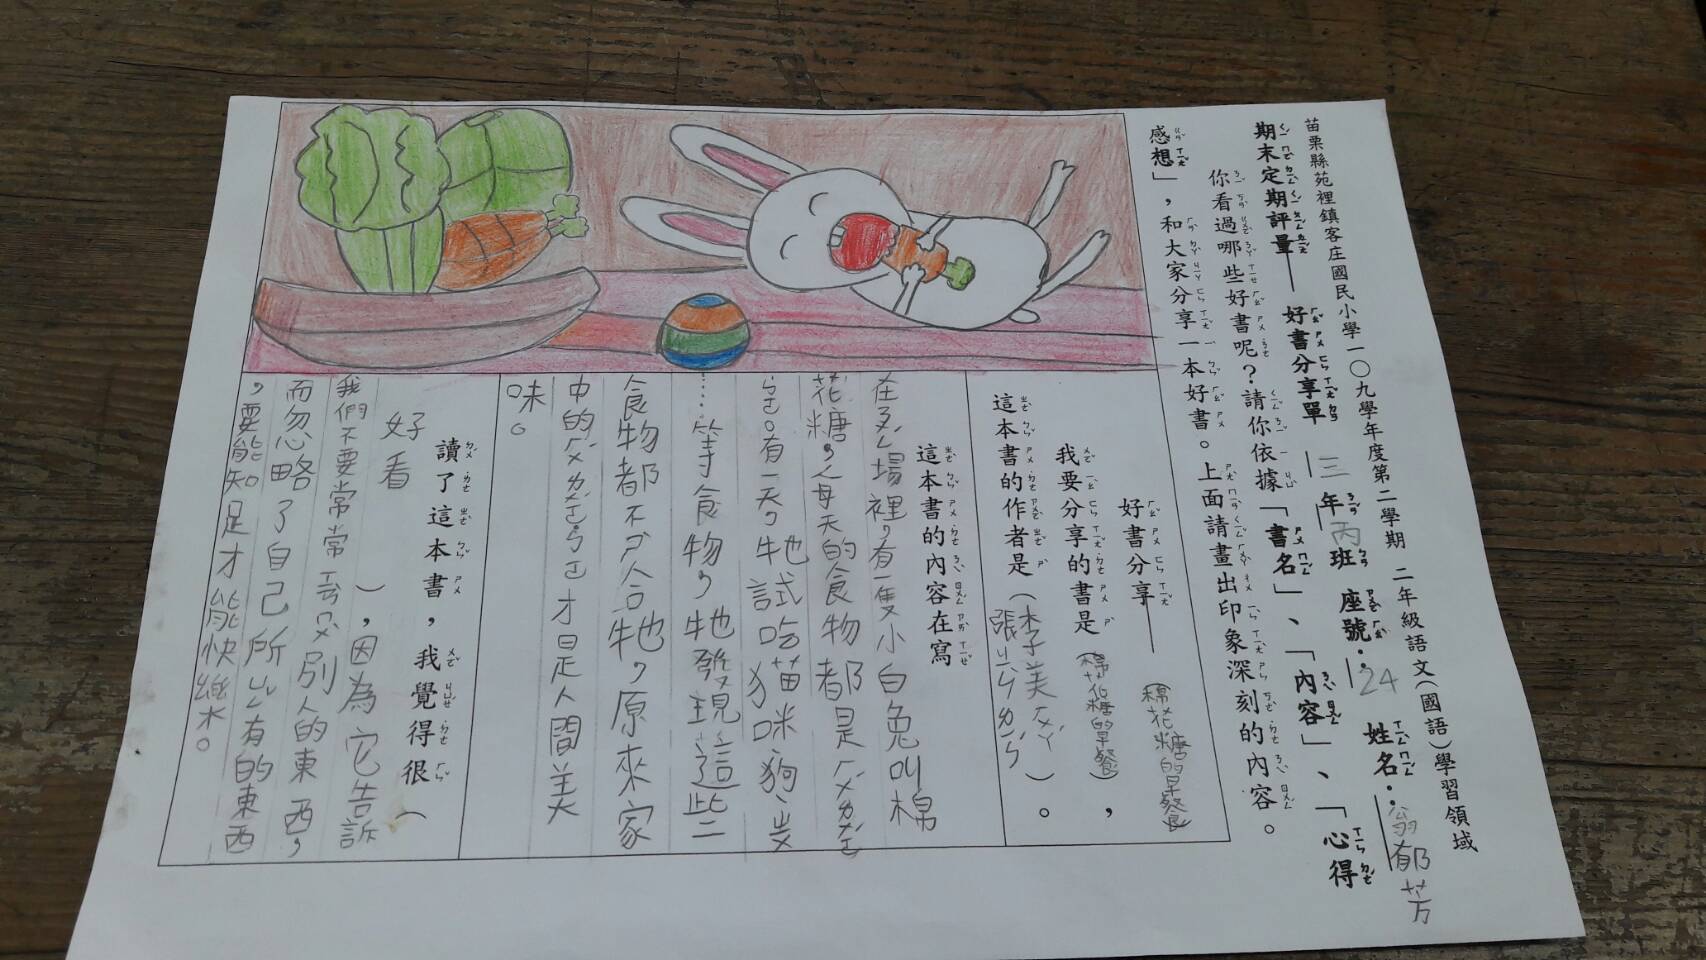 苗栗縣苑裡鎮客庄國民小學一〇九學年度第二學期 二年級語文(國語)學習領域
期末定期評量——好書分享單 三年丙班 座號:24 姓名:翁郁芳
你看過哪些好書呢?請你依據「書名」、「內容」、「心得
感想」,和大家分享一本好書。上面請畫出印象深刻的內容。
好書分享——(棉花糖的早餐)
我要分享的書是(棉花糖的早餐),
這本書的作者是(李美ㄏㄚˊ
張ㄒㄧㄢˋㄌㄧㄥˊ)。
這本書的內容在寫
在ㄋㄨㄥˊ場裡,有一隻小白兔叫棉
花糖,每天的食物都是ㄏㄨˊㄌㄨㄛˊ
ㄅㄛ。有一天,牠試吃貓咪、狗、
……等食物,牠發現這些
食物都不ㄕˋ合牠,原來家
中的ㄏㄨˊㄌㄨㄛˊㄅㄛ才是人間美
味。
讀了這本書,我覺得很(
好看 ),因為它告訴
我們不要常常
而忽略了自己所ㄩㄥˇ有的東西
,要能知足才能快樂。